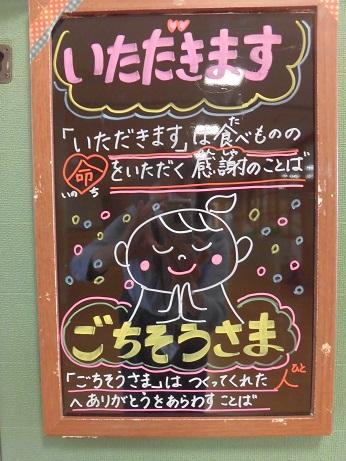 いただきます
「いただきます」は食べものの
命をいただく感謝のことば
ごちそうさま
「ごちそうさま」は つくってくれた人
へありがとうをあらわすことば